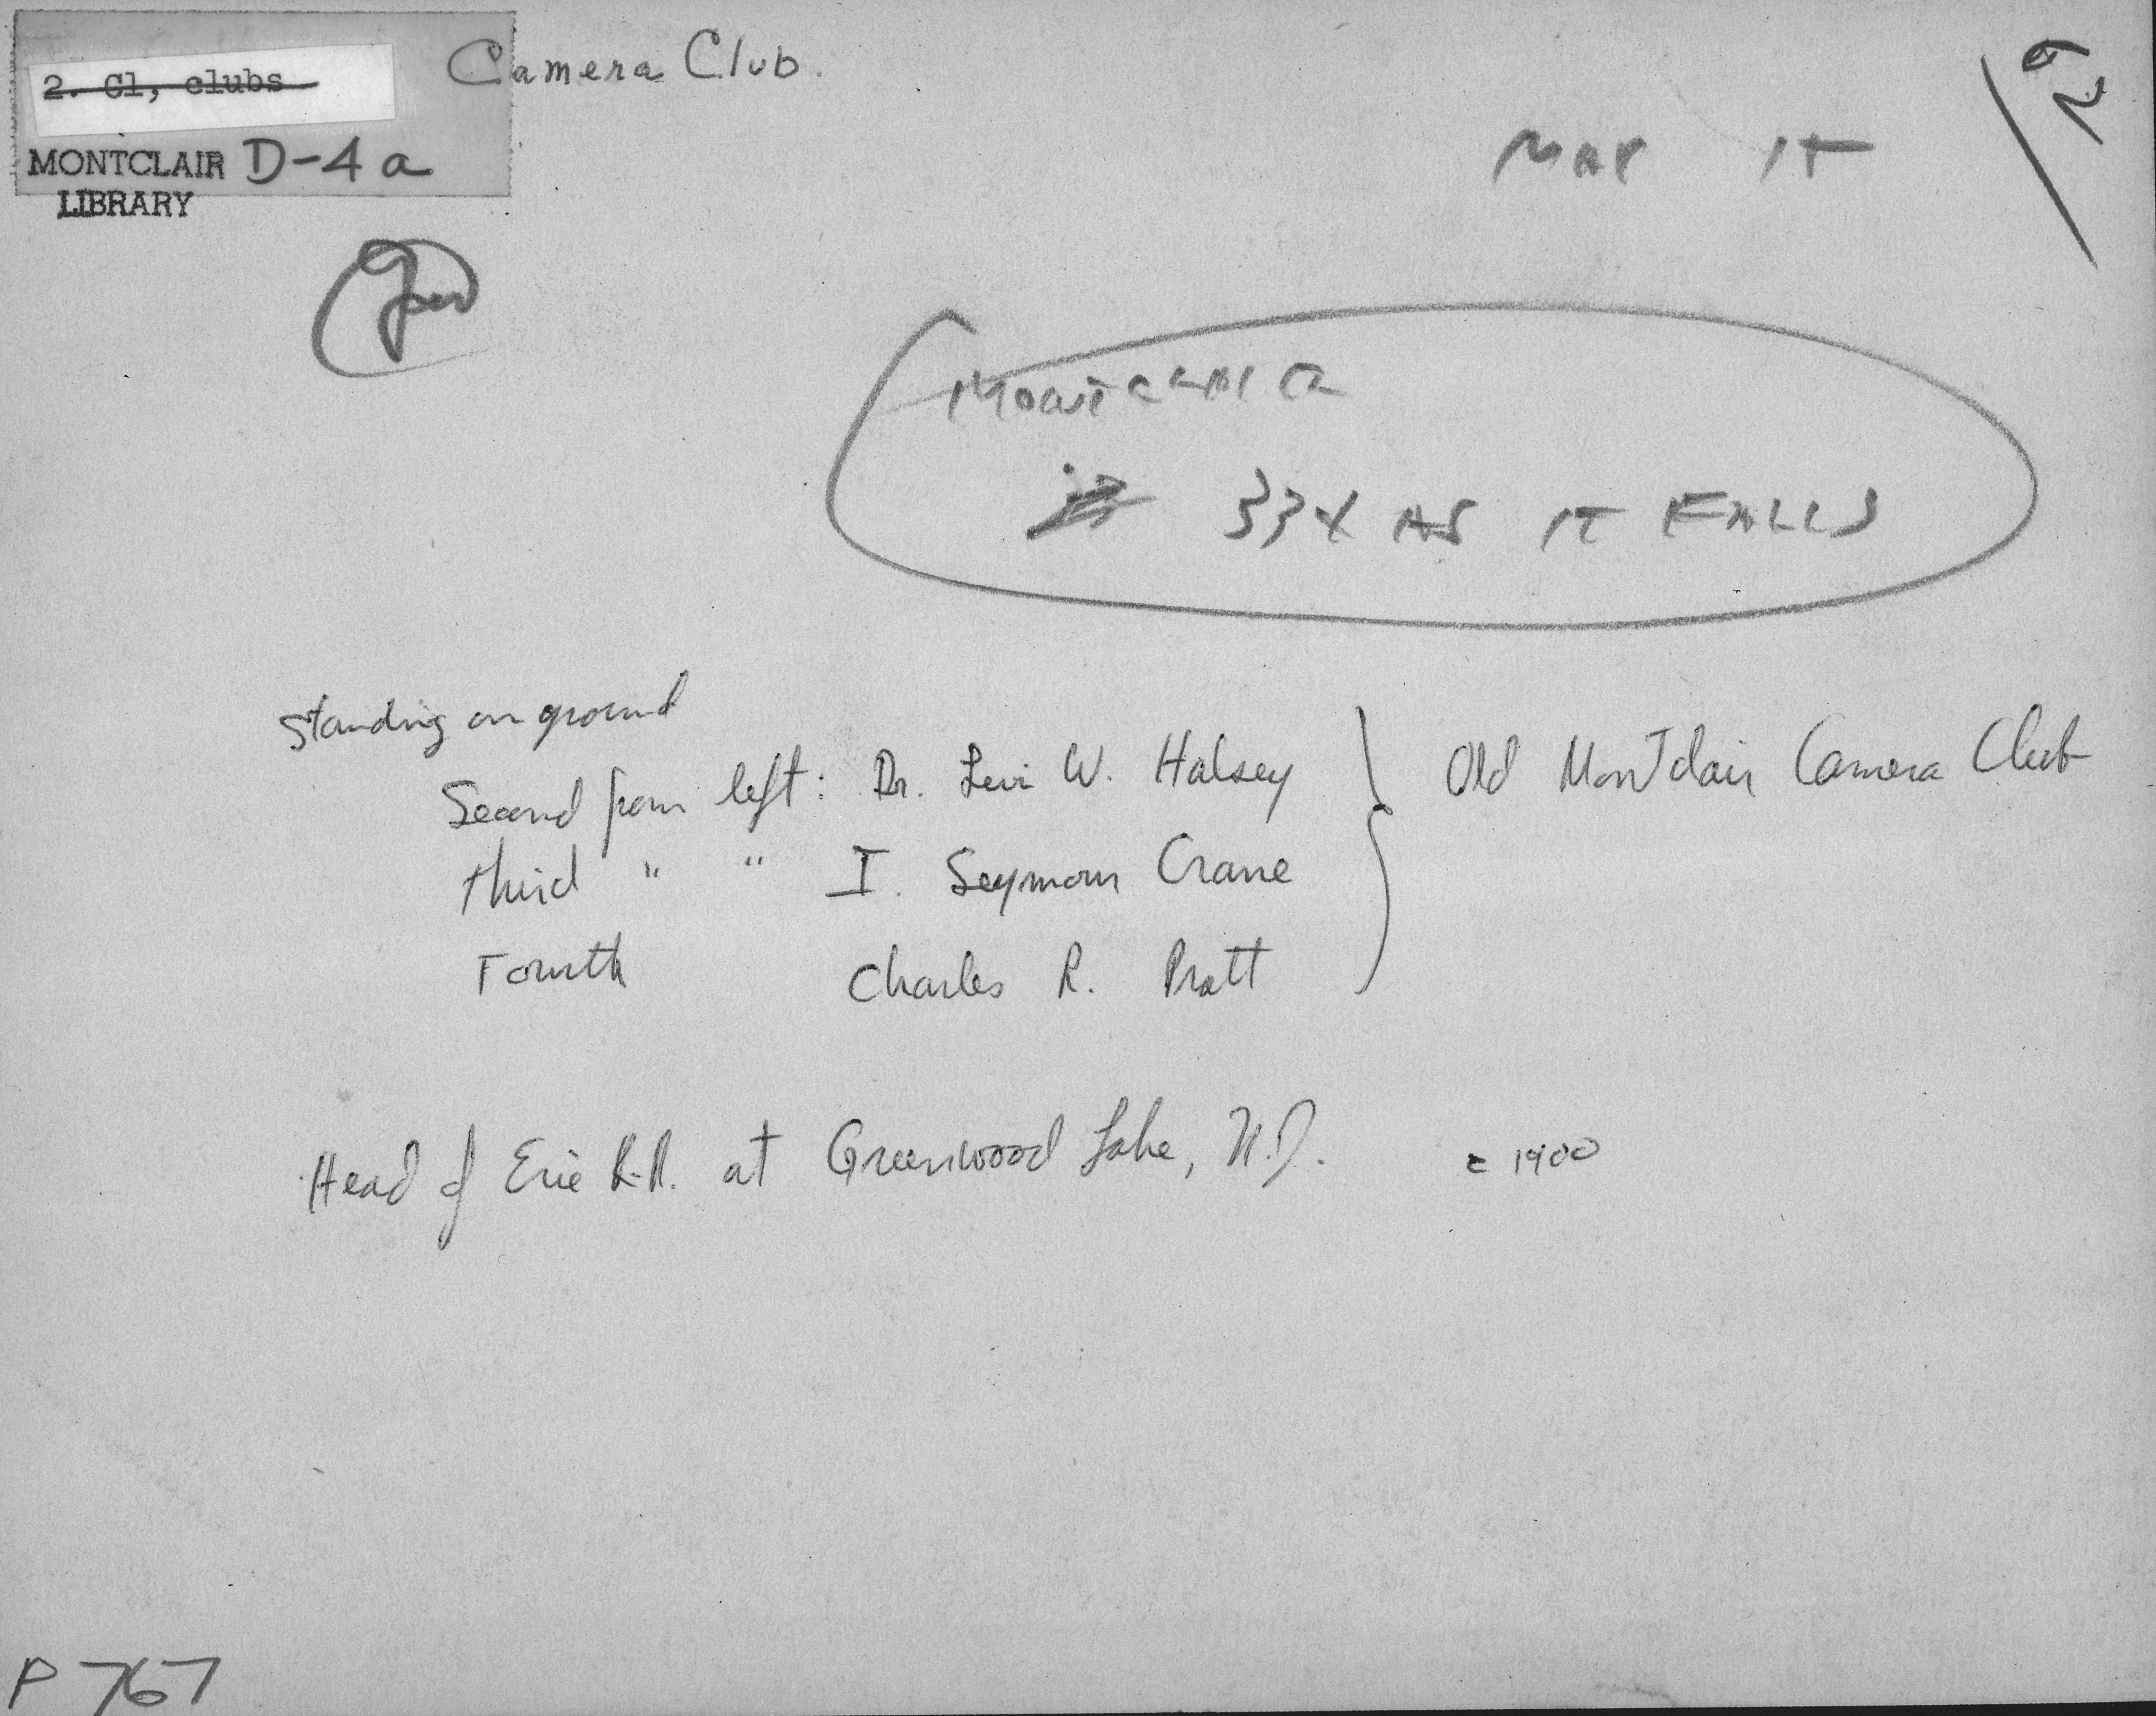 2. Cl, clubs
Camera Club.
MONTCLAIR D-4a
LIBRARY
MAX 1T
MONTCLAIR
33X AS IT FALLS
Standing on ground
Second from left: Dr. Levi W. Halsey } Old Montclair Camera Club
third " " I. Seymour Crane
Fourth Charles R. Pratt
Head of Erie R.R. at Greenwood Lake, N.J. c 1900
P 767